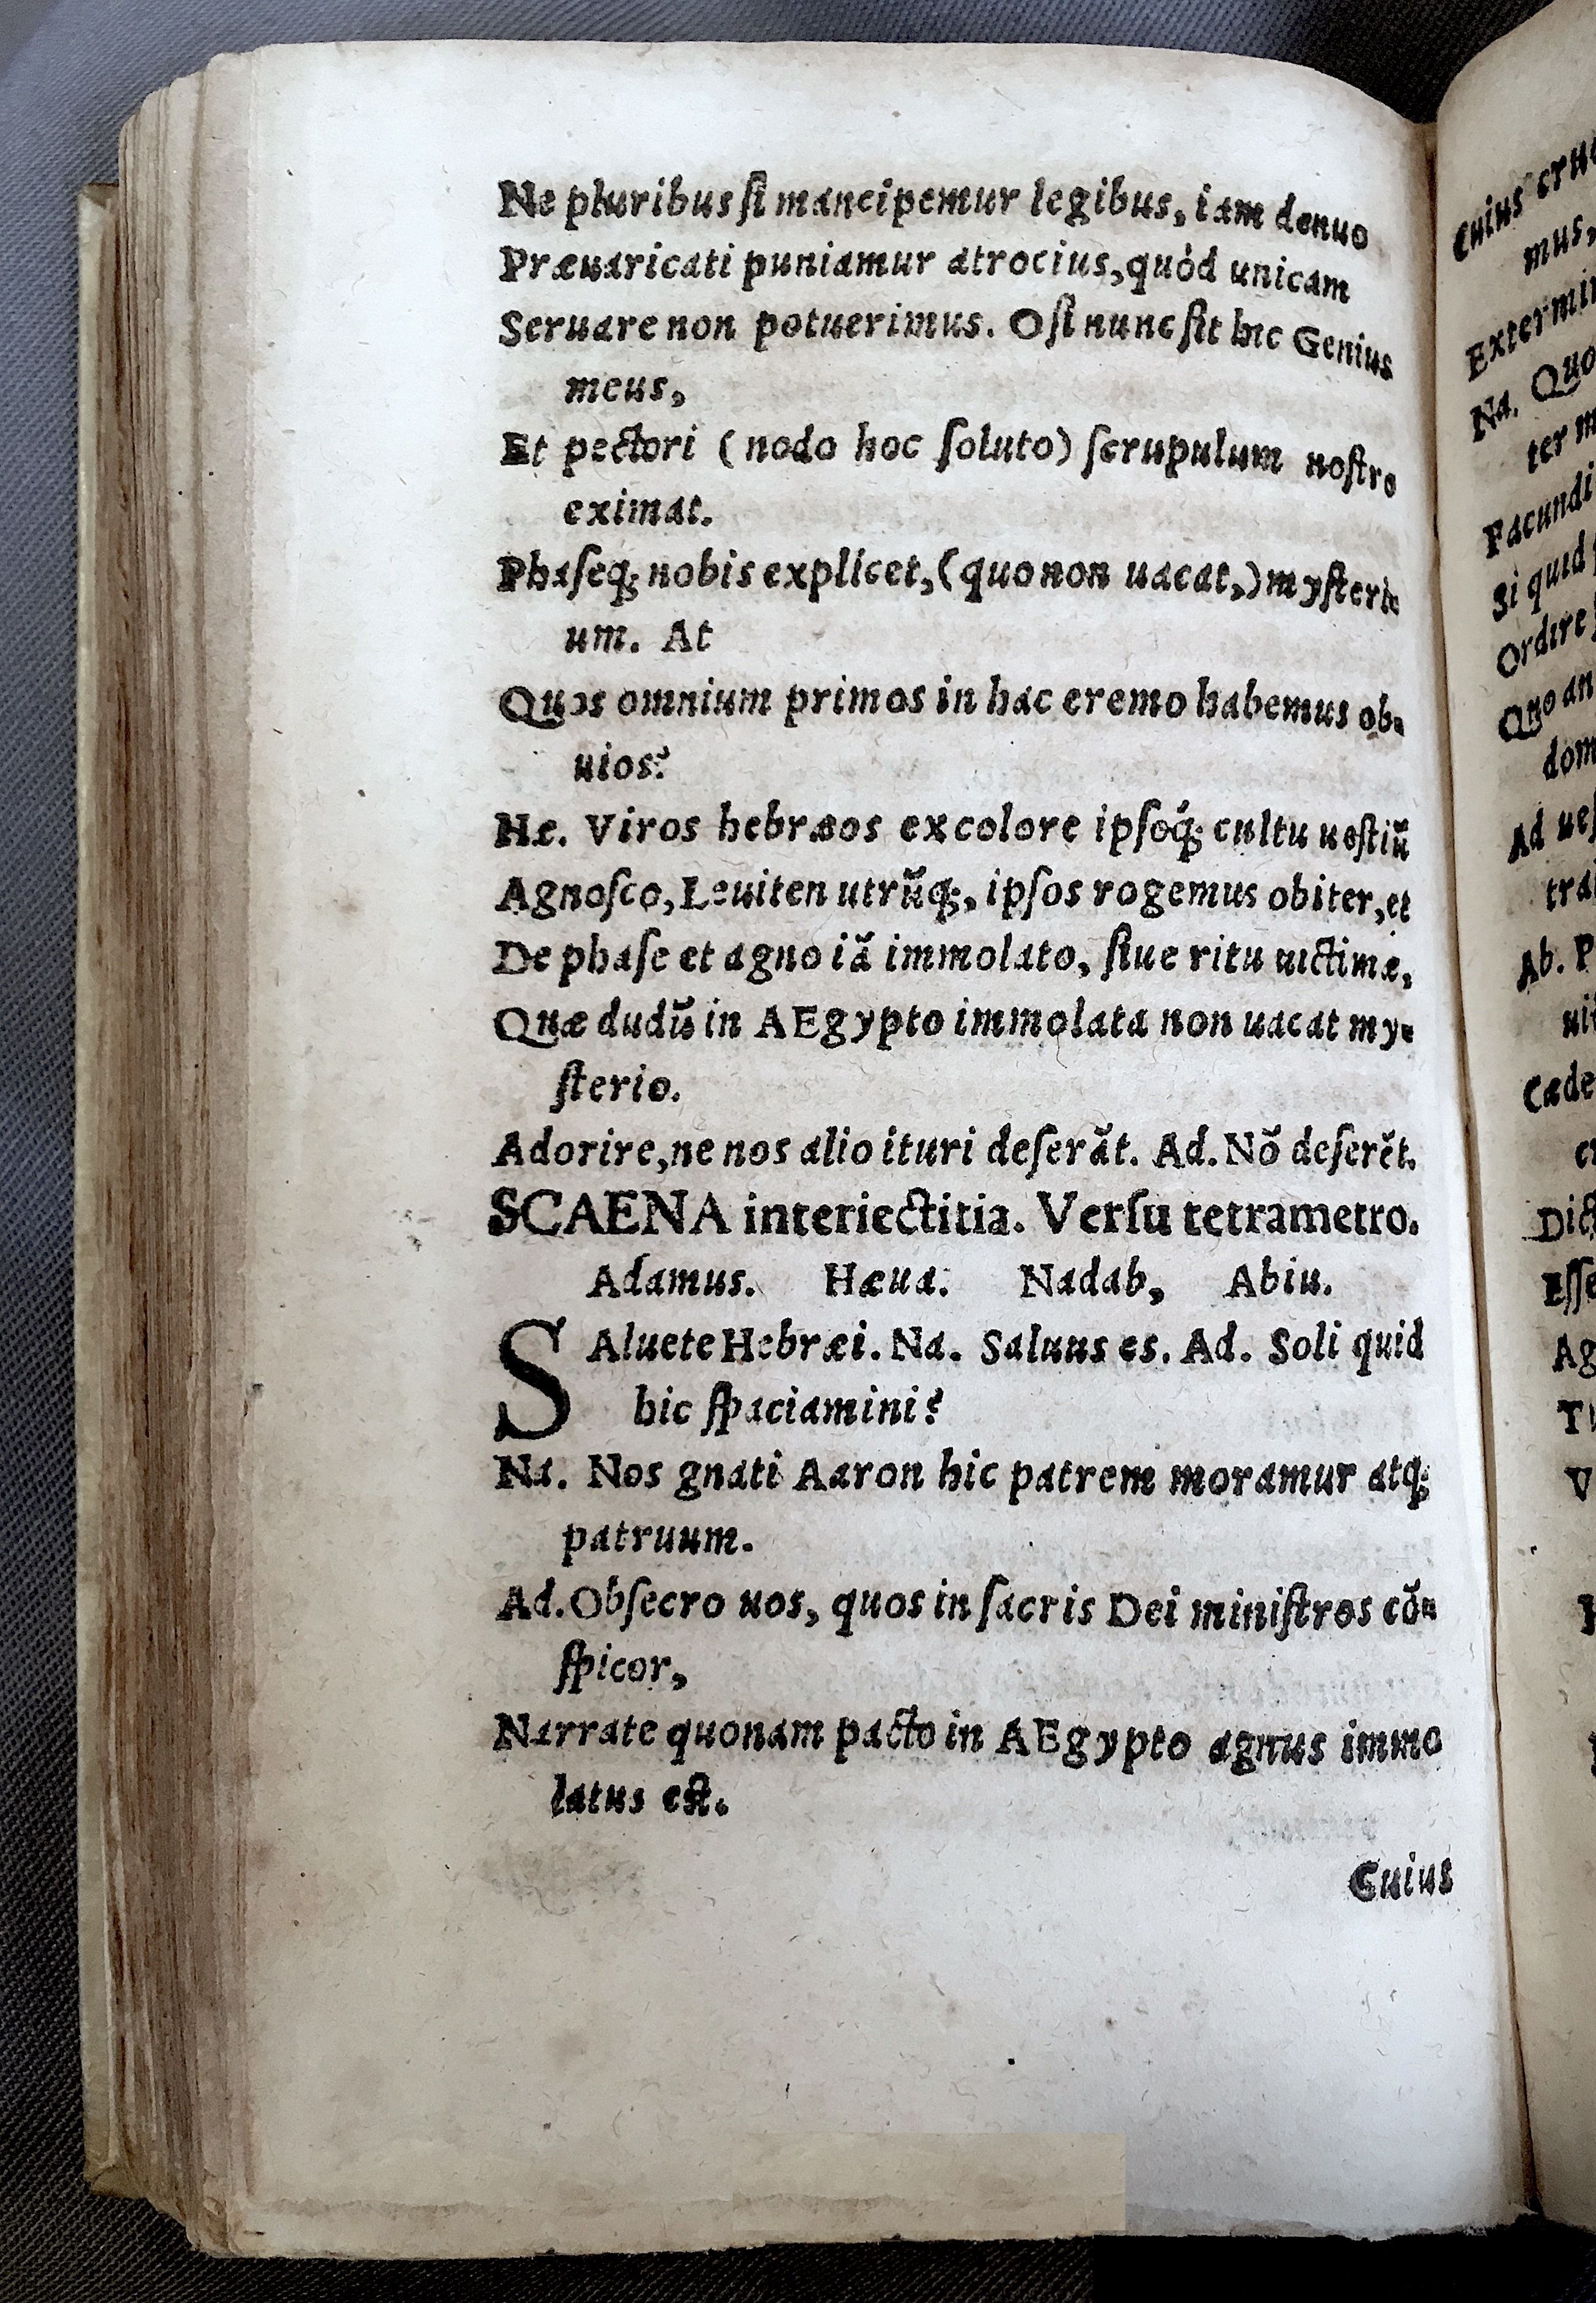 Ne pluribus ſi mancipemur legibus, iam denuo
Præuaricati puniamur atrocius, quòd unicam
Seruare non potuerimus. O ſi nunc ſit hic Genius
meus,
Et pectori (nodo hoc ſoluto) ſcrupulum noſtro
eximat.
Phaſeq; nobis explicet, (quo non uacat,) myſteri-
um. At
Quos omnium primos in hac eremo habemus ob-
uios?
He. Viros hebræos ex colore ipſoq́; cultu ueſtiũ
Agnoſco, Leuiten utrũq;, ipſos rogemus obiter, et
De phaſe et agno iã immolato, ſiue ritu uictimæ,
Quæ dudũ in AEgypto immolata non uacat my-
ſterio.
Adorire, ne nos alio ituri deſerãt. Ad. Nõ deſerẽt.
SCAENA interiectitia. Verſu tetrametro.
Adamus. Hæua. Nadab, Abiu.
SAluete Hebræi. Na. Saluus es. Ad. Soli quid
hic ſpaciamini?
Na. Nos gnati Aaron hic patrem moramur atq;
patruum.
Ad. Obſecro uos, quos in ſacris Dei miniſtros cõ-
ſpicor,
Narrate quonam pacto in AEgypto agnus immo
latus eſt.
Cuius
Cuius
mus,
Na. Quo
ter m
Facundi
Si quid
Ordire
Quo an
dom
Ad ueſ
Ab. P
Cade